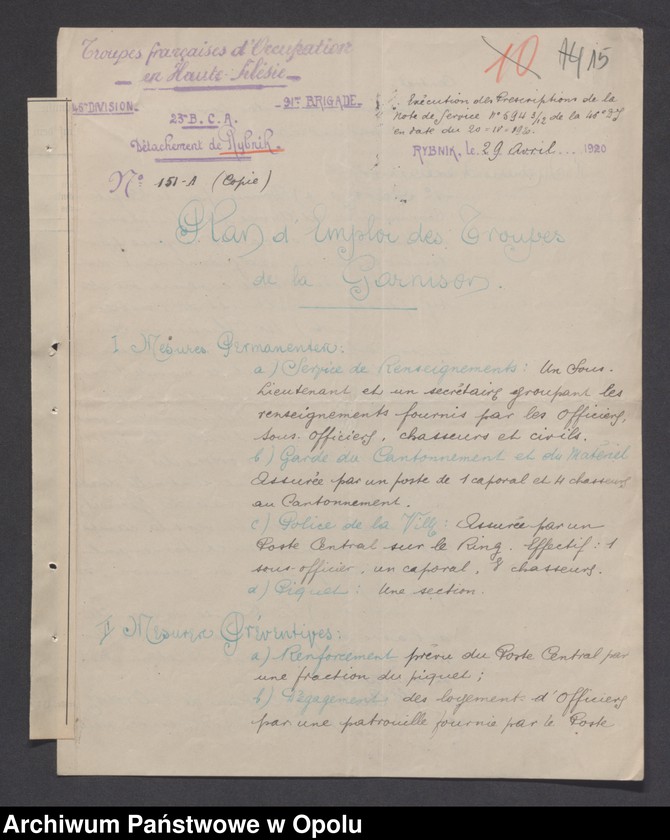 Troupes françaises d'Occupation
en Haute-Silésie
10 15
46e DIVISION.
91e BRIGADE.
Exécution des Prescriptions de la
Note de Service No 694 3/12 de la 46e DI
en date du 20-
23e B.C.A.
Détachement de Rybnik.
RYBNIK, le 29 Avril ... 1920
No 151-A (Copie)
Plan d'Emploi des Troupes
de la Garnison.
I Mesures Permanentes:
a) Service de Renseignements: Un Sous-
Lieutenant et un secrétaire groupant les
renseignements fournis par les Officiers,
Sous-Officiers, chasseurs et civils.
b) Garde du Cantonnement et du Matériel
Assurée par un poste de 1 caporal et 4 chasseurs
au Cantonnement.
c) Police de la Ville: Assurée par un
Poste Central sur le Ring. Effectif: 1
sous-officier, un caporal, 8 chasseurs.
d) Piquet: Une section.
II Mesures Préventives:
a) Renforcement prévu du Poste Central par
une fraction du piquet;
b) Dégagement des logement d'Officiers
par une patrouille fournie par le Poste
Archiwum Państwowe w Opolu